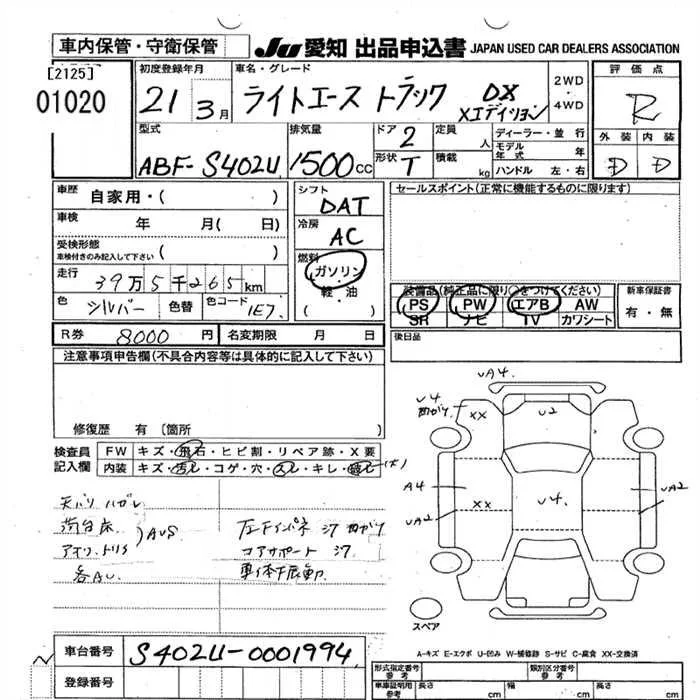 車内保管・守衛保管
JU 愛知 出品申込書 JAPAN USED CAR DEALERS ASSOCIATION
[2125]
01020
初度登録年月
21 3月
車名・グレード
ライトエース トラック DX
Xエディション
2WD
・
4WD
評価点
R
型式
ABF-S402U
排気量
1500cc
ドア 2
形状 T
定員 人
積載 kg
ディーラー・並行
モデル年式 年
ハンドル 左・右
外装 内装
D D
車歴 自家用・( )
車検 年 月( 日)
受検形態
車検付きのみ記入して下さい ( )
走行 39万5千265km
色 シルバー 色替 色コード 1E7
シフト
DAT
冷房
AC
燃料
ガソリン
軽・油
( )
セールスポイント(正常に機能するものに限ります)
装備品(純正品に限り○をつけてください)
PS PW エアB AW
SR ナビ TV カワシート
新車保証書
有・無
R券 8000円 名変期限 月 日
後日品
注意事項申告欄(不具合内容等は具体的に記入して下さい)
修復歴 有 〔箇所
検査員
記入欄
FW キズ・飛石・ヒビ割・リペア跡・X要
内装 キズ・汚レ・コゲ・穴・スレ・キレ・破レ(大)
天バリ ハガレ
荷台床
アオリ、トリイ
AUS
各AU
左Fインパネ シワ 曲がり
コアサポート シワ
車体下振動
UA4
U4
曲がり
XX
U2
A4
XX
U4
UA2
UA2
スペア
A-キズ E-エクボ U-凹み W-補修跡 S-サビ C-腐食 XX-交換済
車台番号 S402U-0001994
登録番号
形式指定番号
参考
類別区分番号
参考
車庫証明用
参考
長さ cm 幅 cm 高さ cm